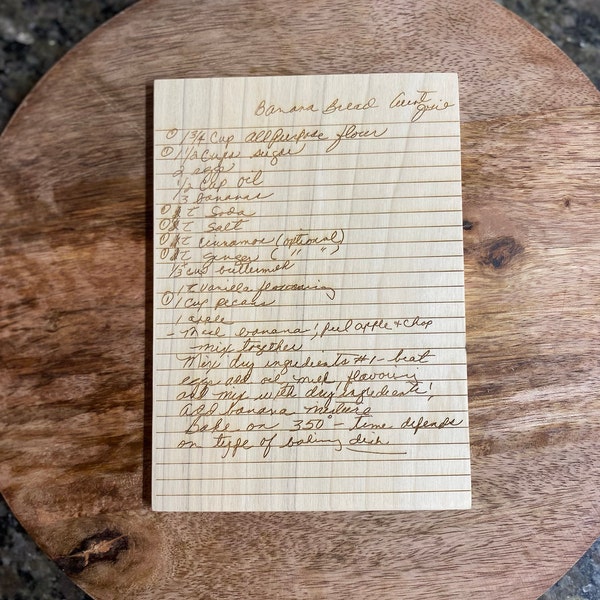 Banana Bread Aunt
① 1 3/4 Cup All Purpose flour
① 1 1/2 Cups sugar
2 eggs
1/2 Cup oil
3 bananas
① 1 t soda
① t salt
① t cinnamon (optional)
① t ginger ( " " )
1/3 cup buttermilk
1 t vanilla flavouring
① 1 Cup pecans
1 apple
- Mash banana, peel apple & chop
- mix together
Mix dry ingredients #1 - beat
eggs add oil milk flavouring
add mix with dry ingredients,
Add banana mixture
Bake on 350° - time depends
on type of baking dish